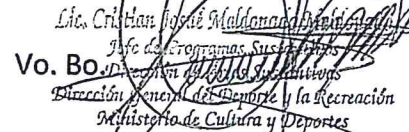 Lic. Cristian Josué Maldonado
Jefe de Programas Sustantivos
Vo. Bo. Dirección de Áreas Sustantivas
Dirección General del Deporte y la Recreación
Ministerio de Cultura y Deportes